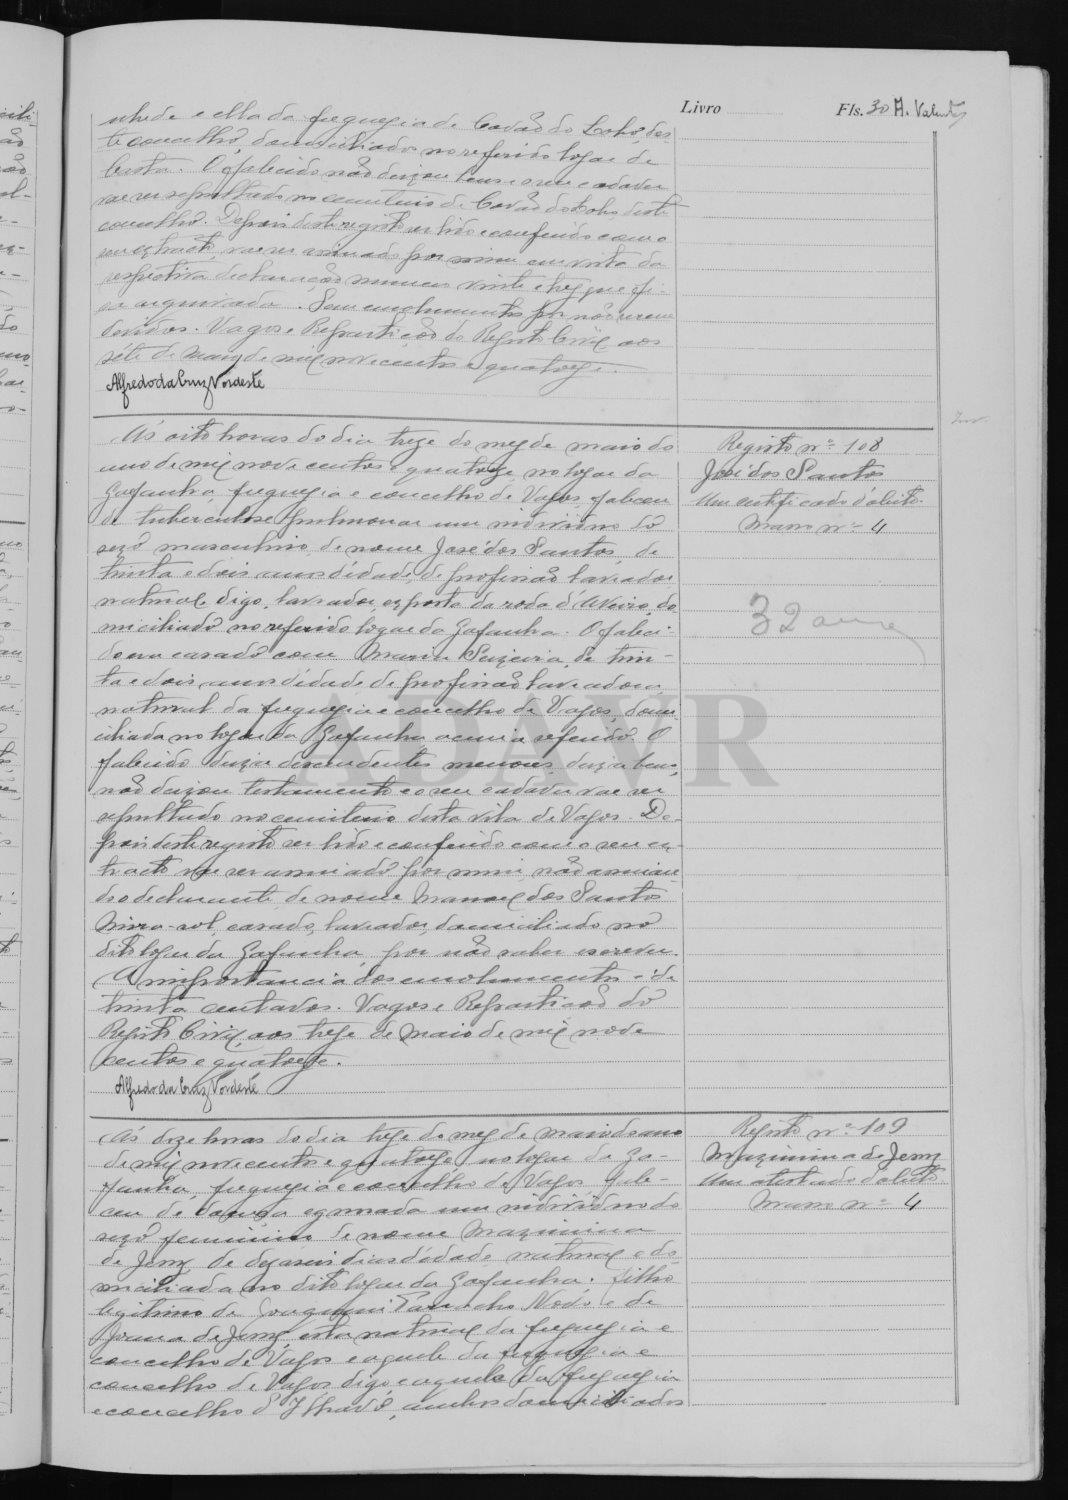 Livro
Fls. 30 A. Valente
nhede e ella da freguezia de Covão do Lobo, des-
te concelho, domiciliados no referido logar de
O falecido não deixou bens e o seu cadaver
vae ser sepultado no cemiterio de Covão do Lobo deste
concelho. Depois deste registo ser lido e conferido com o
seu extracto, vae ser assinado por mim em vista da
respectiva declaração numero vinte e tres que fi-
ca arquivada. Sem emolumentos por não serem
devidos. Vagos e Repartição do Registo Civil aos
sete de Maio de mil novecentos e quatorze.
Alfredo da Cruz Nordeste
Ás oito horas do dia treze do mez de maio do
ano de mil nove centos e quatorze, no logar da
Gafanha, freguezia e concelho de Vagos, faleceu
de tuberculose pulmonar um individuo do
sexo masculino, de nome José dos Santos, de
trinta e dois anos d'idade, de profissão lavrador
natural digo, lavrador, exposto da roda d'Aveiro, do-
miciliado no referido logar da Gafanha. O faleci-
do era casado com Maria Teixeira, de trin-
ta e dois anos d'idade, de profissão lavradora,
natural da freguezia e concelho de Vagos, domi-
ciliada no logar da Gafanha acima referido. O
falecido deixa descendentes menores, deixa bens,
não deixou testamento e o seu cadaver vae ser
sepultado no cemiterio desta vila de Vagos. De-
pois deste registo ser lido e conferido com o seu ex-
tracto vae ser assinado por mim, não assinan-
do o declarante, de nome Manoel dos Santos
Mira-sol, casado, lavrador, domiciliado no
dito logar da Gafanha, por não saber escrever.
A importancia dos emolumentos é de
trinta centavos. Vagos e Repartição do
Registo Civil, aos treze de Maio de mil nove
centos e quatorze.
Alfredo da Cruz Nordeste
Registo nº 108
José dos Santos
Um certificado d'obito.
Masso nº 4
32 anos
Ás doze horas do dia treze do mez de maio do ano
de mil novecentos e quatorze, no logar da Ga-
fanha, freguezia e concelho de Vagos fale-
ceu de doença ignorada um individuo do
sexo feminino de nome Maximina
de Jesus, de dezaseis dias d'idade, natural e do-
miciliada no dito logar da Gafanha. filha
legitima de Joaquim Nodo e de
Joana de Jesus, esta natural da freguezia e
concelho de Vagos e aquele da freguezia e
concelho de Vagos, digo e aquele da freguezia
e concelho d'Ilhavo, ambos domiciliados
Registo nº 109
Maximina de Jesus
Um atestado d'obito
Masso nº 4
ADAVR